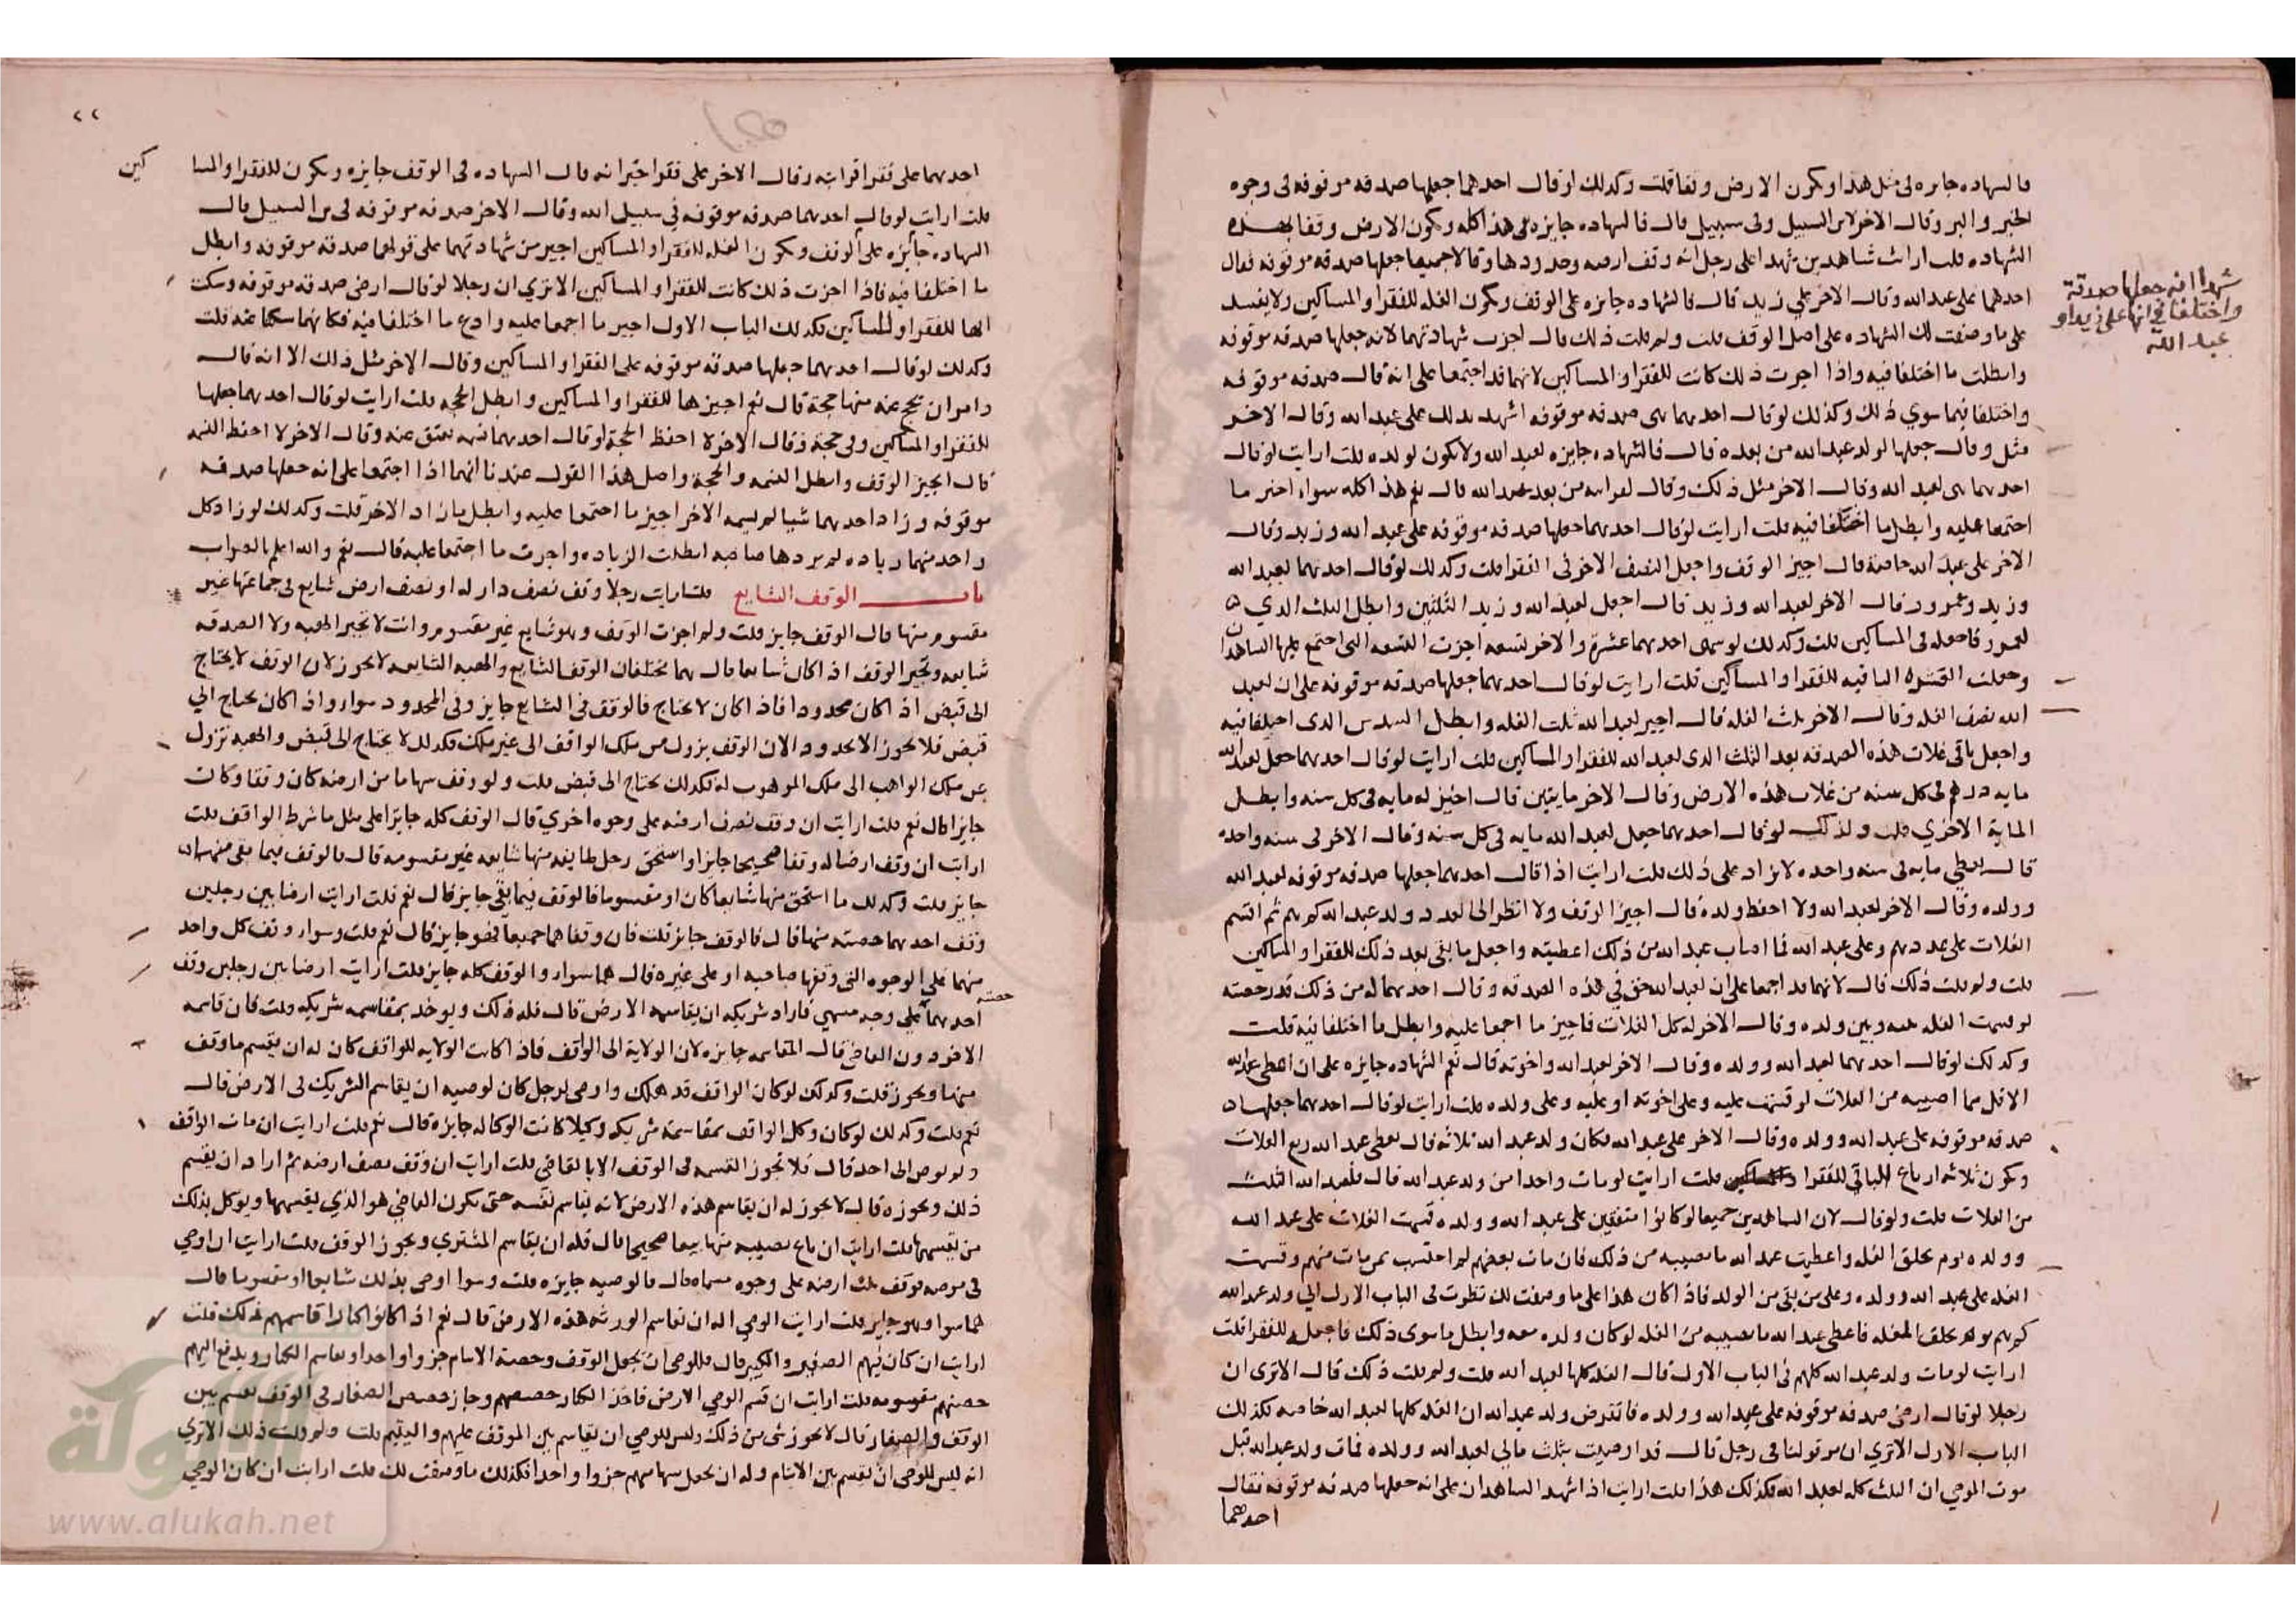 فالشهاده جايزه في مثل هذا ويكون الارض وقفا قلت وكذلك لو قال احدهما جعلها صدقه موقوفه في وجوه
الخير والبر وقال الاخر لابن السبيل وفي سبيل قال فالشهاده جايزه في هذا كله ويكون الارض وقفا بهذه
الشهاده قلت ارايت شاهدين شهدا على رجل انه وقف ارضه وحددها وقالا جميعا جعلها صدقه موقوفه فقال
احدهما على عبد الله وقال الاخر على زيد قال فالشهاده جايزه على الوقف ويكون الغله للفقرا والمساكين ولا يفسد
على ما وصفت لك الشهاده على اصل الوقف قلت ولم قلت ذلك قال اجزت شهادتهما لانه جعلها صدقه موقوفه
وابطلت ما اختلفا فيه واذا اجزت ذلك كانت للفقرا والمساكين لانهما قد اجتمعا على انه قال صدقه موقوفه
واختلفا فيما سوي ذلك وكذلك لو قال احدهما هي صدقه موقوفه اشهد بذلك على عبد الله وقال الاخر
مثل وقال جعلها لولد عبد الله من بعده قال فالشهاده جايزه لعبد الله ولا يكون لولده قلت ارايت لو قال
احدهما هي لعبد الله وقال الاخر مثل ذلك وقال لقرابته من بعد عبد الله قال نعم هذا كله سوا اجيز ما
اجتمعا عليه وابطل ما اختلفا فيه قلت ارايت لو قال احدهما جعلها صدقه موقوفه على عبد الله وزيد وقال
الاخر على عبد الله خاصة قال اجيز الوقف واجعل النصف الاخر في الفقرا قلت وكذلك لو قال احدهما لعبد الله
وزيد وعمرو وقال الاخر لعبد الله وزيد قال اجعل لعبد الله وزيد الثلثين وابطل الثلث الذي
لعمرو فاجعله في المساكين قلت وكذلك لو سمى احدهما عشرة والاخر تسعه اجزت التسعه التي اجتمع عليها الشاهدان
وجعلت العشره الباقيه للفقرا والمساكين قلت ارايت لو قال احدهما جعلها صدقه موقوفه على ان لعبد
الله نصف الغله وقال الاخر ثلث الغله قال اجيز لعبد الله ثلث الغله وابطل السدس الذي اختلفا فيه
واجعل باقي غلات هذه الصدقه بعد الثلث الذي لعبد الله للفقرا والمساكين قلت ارايت لو قال احدهما جعل لعبد الله
مايه درهم في كل سنه من غلات هذه الارض وقال الاخر مايتين قال اجيز له مايه في كل سنه وابطل
الماية الاخرى قلت وكذلك لو قال احدهما جعل لعبد الله مايه في كل سنه وقال الاخر في سنه واحده
قال يعطي مايه في سنه واحده لا يزاد على ذلك قلت ارايت اذا قال احدهما جعلها صدقه موقوفه لعبد الله
وولده وقال الاخر لعبد الله ولا احفظ ولده قال اجيز الوقف ولا انظر الى العدد وولد عبد الله كم هم ثم اقسم
الغلات على عددهم وعلى عبد الله فما اصاب عبد الله من ذلك اعطيته واجعل ما بقي بعد ذلك للفقرا والمساكين
قلت ولم قلت ذلك قال لانهما قد اجمعا على ان لعبد الله حق في هذه الصدقه وقال احدهما له من ذلك قدر حصته
لو قسمت الغله عليه وبين ولده وقال الاخر له كل الغلات فاجيز ما اجمعا عليه وابطل ما اختلفا فيه قلت
وكذلك لو قال احدهما لعبد الله وولده وقال الاخر لعبد الله واخوته قال نعم الشهاده جايزه على ان اعطي عبد الله
الاقل مما اصيبه من الغلات لو قسمت عليه وعلى اخوته او عليه وعلى ولده قلت ارايت لو قال احدهما جعلها
صدقه موقوفه على عبد الله وولده وقال الاخر على عبد الله فكان ولد عبد الله ثلاثه قال يعطى عبد الله ربع الغلات
ويكون ثلاثه ارباع الباقي للفقرا والمساكين قلت ارايت لو مات واحدا من ولد عبد الله قال فلعبد الله الثلث
من الغلات قلت ولو قال لان الشاهدين جميعا لو كانوا متفقين على عبد الله وولده قسمت الغلات على عبد الله
وولده يوم يخلق الغله واعطيت عبد الله ما نصيبه من ذلك فان مات بعضهم لم احتسب بمن مات منهم وقسمت
الغله على عبد الله وولده وعلى من بقي من الولد فاذا كان هذا على ما وصفت لك نظرت في الباب الاول الي ولد عبد الله
كم هم يوم يخلق الغله فاعطى عبد الله ما نصيبه من الغله لو كان ولده معه وابطل ما سوى ذلك فاجعله للفقرا قلت
ارايت لو مات ولد عبد الله كلهم في الباب الاول قال الغله كلها لعبد الله قلت ولم قلت ذلك قال الا ترى ان
رجلا لو قال ارضي صدقه موقوفه على عبد الله وولده فانقرض ولد عبد الله ان الغله كلها لعبد الله خاصه فكذلك
الباب الاول الا ترى ان من قولنا في رجل قال قد اوصيت بثلث مالي لعبد الله وولده فمات ولد عبد الله قبل
موت الموصي ان الثلث كله لعبد الله فكذلك هذا قلت ارايت اذا شهد الشاهدان على انه جعلها صدقه موقوفه فقال
احدهما
شهدا انه جعلها صدقة
واختلفا في انها على زيد او
عبد الله
احدهما على فقرا قرابته وقال الاخر على فقرا جيرانه قال الشهاده في الوقف جايزه ويكون للفقرا والمسا كين
قلت ارايت لو قال احدهما صدقه موقوفه في سبيل الله وقال الاخر صدقه موقوفه في بر السبيل قال
الشهاده جايزه على الوقف ويكون الغله للفقرا والمساكين اجيز من شهادتهما على قولهما صدقه موقوفه وابطل
ما اختلفا فيه فاذا اجزت ذلك كانت للفقرا والمساكين الا تري ان رجلا لو قال ارضي صدقه موقوفه وسكت
انها للفقرا والمساكين فكذلك الباب الاول اجيز ما اجمعا عليه وادع ما اختلفا فيه فكانهما سكتا عنه قلت
وكذلك لو قال احدهما جعلها صدقه موقوفه على الفقرا والمساكين وقال الاخر مثل ذلك الا انه قال
وامر ان يحج عنه منها حجة قال نعم اجيزها للفقرا والمساكين وابطل الحجه قلت ارايت لو قال احدهما جعلها
للفقرا والمساكين وفي حجة وقال الاخر لا احفظ الحجة او قال احدهما نسمه يعتق عنه وقال الاخر لا احفظ النسمه
قال اجيز الوقف وابطل النسمه والحجة واصل هذا القول عندنا انهما اذا اجتمعا على انه جعلها صدقه
موقوفه وزاد احدهما شيا لم يسمه الاخر اجيز ما اجتمعا عليه وابطل ما زاد الاخر قلت وكذلك لو زاد كل
واحد منهما زياده لم يردها صاحبه ابطلت الزياده واجزت ما اجتمعا عليه قال نعم والله اعلم بالصواب
باب الوقف الشايع قلت ارايت رجلا وقف نصف دار له او نصف ارض شايع في جماعتها غير
مقسوم منها قال الوقف جايز قلت ولم اجزت الوقف وهو شايع غير مقسوم وانت لا تجيز الهبه ولا الصدقه
شايعه وتجيز الوقف اذا كان شايعا قال هما مختلفان الوقف الشايع والهبه الشايعه لا يجوز لان الوقف لا يحتاج
الى قبض اذا كان محدودا فاذا كان لا يحتاج فالوقف في الشايع جايز وفي المحدود سوا واذا كان يحتاج الي
قبض فلا يجوز الا محدود الان الوقف يزول من ملك الواقف الى غير ملك فكذلك لا يحتاج الى قبض والهبه تزول
عن ملك الواهب الى ملك الموهوب له فكذلك يحتاج الى قبض قلت ولو وقف سهاما من ارضه كان وقفا وكان
جايزا قال نعم قلت ارايت ان وقف نصف ارضه على وجوه اخري قال الوقف كله جايزا على مثل ما شرط الواقف قلت
ارايت ان وقف ارضا له وقفا صحيحا جايزا واستحق رجل طايفه منها شايعه غير مقسومه قال فالوقف فيما بقي منها
جايز قلت وكذلك ما استحق منها شايعا كان او مقسوما فالوقف فيما بقي جايز قال نعم قلت ارايت ارضا بين رجلين
وقف احدهما حصته منها قال فالوقف جايز قلت فان وقفاهما جميعا فهو جايز قال نعم قلت وسوا وقف كل واحد
منهما على الوجوه التي وقفها صاحبه او على غيره قال هما سوا والوقف كله جايز قلت ارايت ارضا بين رجلين وقف
احدهما حصته على وجه مسمي فاراد شريكه ان يقاسمه الارض قال فله ذلك ويوخذ بمقاسمه شريكه قلت فان قاسمه
الاخر دون القاضي قال المقاسمه جايزه لان الولاية الى الواقف فاذا كانت الولايه للواقف كان له ان يقسم ما وقف
منها ويحوز قلت وكذلك لو كان الواقف قد هلك واوصى لرجل كان لوصيه ان يقاسم الشريك في الارض قال
نعم قلت وكذلك لو كان وكل الواقف بمقاسمة شريكه وكيلا كانت الوكاله جايزة قال نعم قلت ارايت ان مات الواقف
ولم يوص الى احد قال فلا تجوز القسمه في الوقف الا بالقاضي قلت ارايت ان وقف نصف ارضه ثم اراد ان يقسم
ذلك ويحوزه قال لا يجوز له ان يقاسم هذه الارض لانه يقاسم نفسه حتى يكون القاضي هو الذي يقسمها ويوكل بذلك
من يقسمها قلت ارايت ان باع نصيبه منها بيعا صحيحا قال فله ان يقاسم المشتري ويجوز الوقف قلت ارايت ان اوصى
في مرضه توقف ثلث ارضه على وجوه مسماه قال فالوصيه جايزه قلت وسوا اوصى بذلك شايعا او مقسوما قال
هما سوا وهو جايز قلت ارايت الوصي اله ان يقاسم الورثه هذه الارض قال نعم اذا كانوا كبارا قاسمهم ذلك قلت
ارايت ان كان فيهم الصغير والكبير قال فللوصي ان يجعل الوقف وحصة الايتام جزوا واحدا ويقاسم الكبار ويدفع اليهم
حصتهم مقسومه قلت ارايت ان قسم الوصي الارض فاخذ الكبار حصصهم وحاز حصص الصغار في الوقف يقسم بين
الوقف والصغار قال لا يجوز شي من ذلك وليس للوصي ان يقاسم بين الموقف عليهم واليتيم قلت ولم قلت ذلك الا تري
انه ليس للوصي ان يقسم بين الايتام وله ان يجعل سهامهم جزوا واحدا فكذلك ما وصفت لك قلت ارايت ان كان الوصي
www.alukah.net